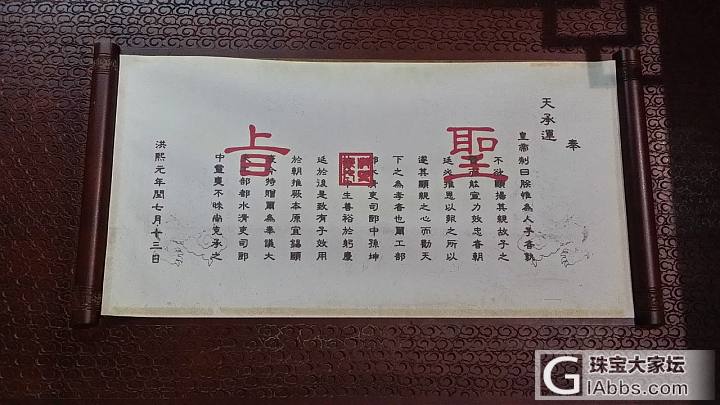 奉
天承運
皇帝制曰朕惟為人子者孰
不欲顯揚其親故子之
能宣力效忠者朝
廷必推恩以報之所以
遂其顯親之心而勸天
下之為孝者也爾工部
都水清吏司郎中孫坤
生善裕於躬慶
延於後是致有子效用
於朝推厥本原宜錫顯
特贈爾為奉議大
部都水清吏司郎
中靈爽不昧尚克承之
洪熙元年閏七月十三日
聖旨
珠宝大家坛
iAbbs.com